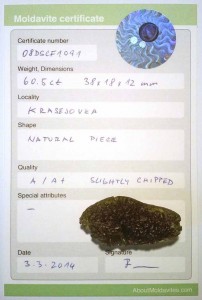 Moldavite certificate
Certificate number
08DGLE1091
Weight, Dimensions
60.5ct 38×18×12 mm
Locality
KRASEJOVKA
Shape
NATURAL PIECE
Quality
A/A+ SLIGHTLY CHIPPED
Special attributes
–
Date
Signature
3-3-2014